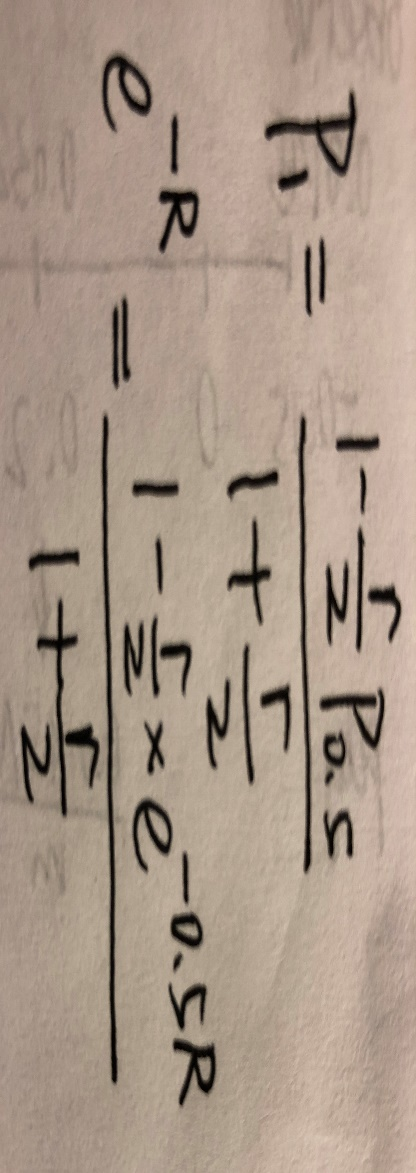 P₁ = (1 - r/2 P₀.₅) / (1 + r/2)
e^(-R) = (1 - r/2 × e^(-0.5R)) / (1 + r/2)